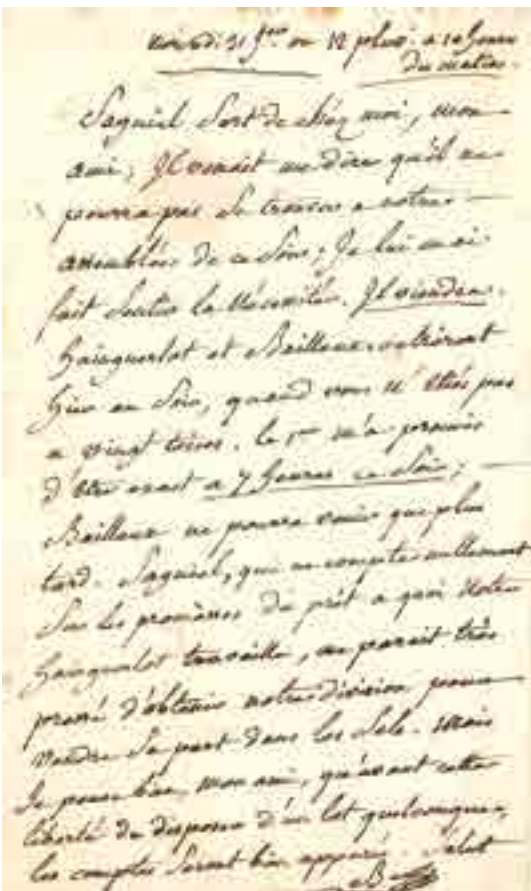 31 J.er ou 12 pluv. a 10 heures
du matin.
Saguiel Sort de chéz moi, mon
ami; Il venait me dire qu'il ne
pourra pas Se trouver a notre
assemblée de ce Soir; Je lui en ai
fait Sentir la Nécessité. Il viendra.
hainguerlot et Bailleux entrèrent
hier au Soir, quand vous n'étiés pas
a vingt toises. le 1er m'a promis
d'être exact a 7 heures ce Soir;
Bailleux ne pourra venir que plus
tard. Saguiel, qui ne compte nullement
Sur les promesses du prêt a quoi notre
hainguerlot travaille, me parait très
pressé d'obtenir notre division pour
vendre Sa part dans les Sels. mais
Je pense bien, mon ami, qu'avant cette
liberté de disposer d'un lot quelconque,
les comptes Seront bien appurés. Salut